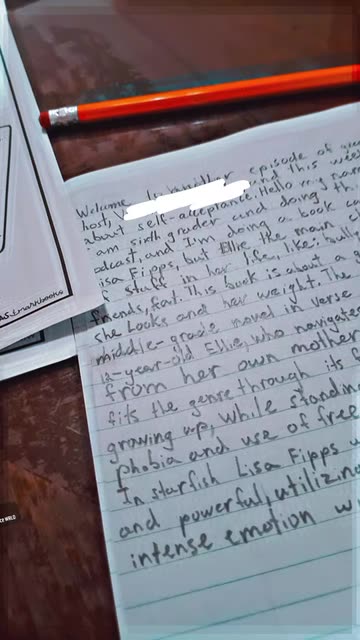 Welcome to another episode of
host,                and this
about self-acceptance. Hello my
am sixth grader and doing
podcast, and I'm doing a book
Lisa Fipps, but Ellie the main
of stuff in her life, like: bull
friends, feat. This book is about a
she looks and her weight. The
middle-grade novel in verse
12-year-old Ellie, who navigates
from her own mother
fits the genre through its f
growing up, while standin
phobia and use of free
In starfish Lisa Fipps
and powerful, utilizing
intense emotion w